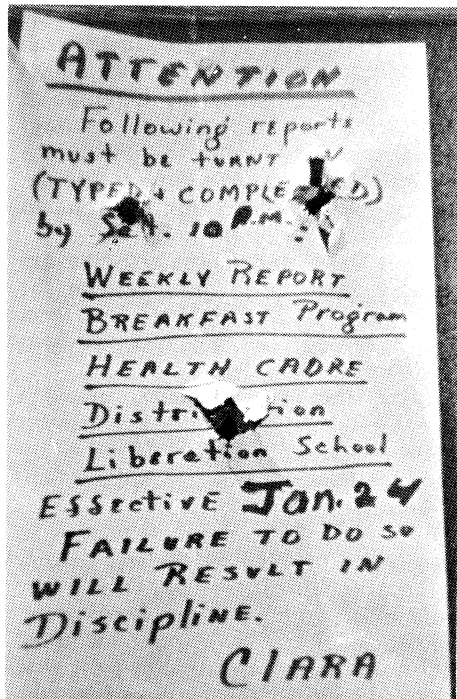 ATTENTION
Following reports
must be TURNT
(TYPED & COMPLETED)
by Sat. 10 P.M.
WEEKLY REPORT
BREAKFAST Program
HEALTH CADRE
Distribution
Liberation School
Effective Jan. 24
FAILURE TO DO SO
WILL RESULT IN
Discipline.
CLARA